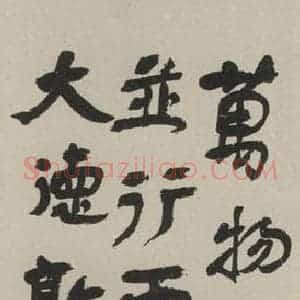 萬物
並行而
大德
Shufaziliao.COM